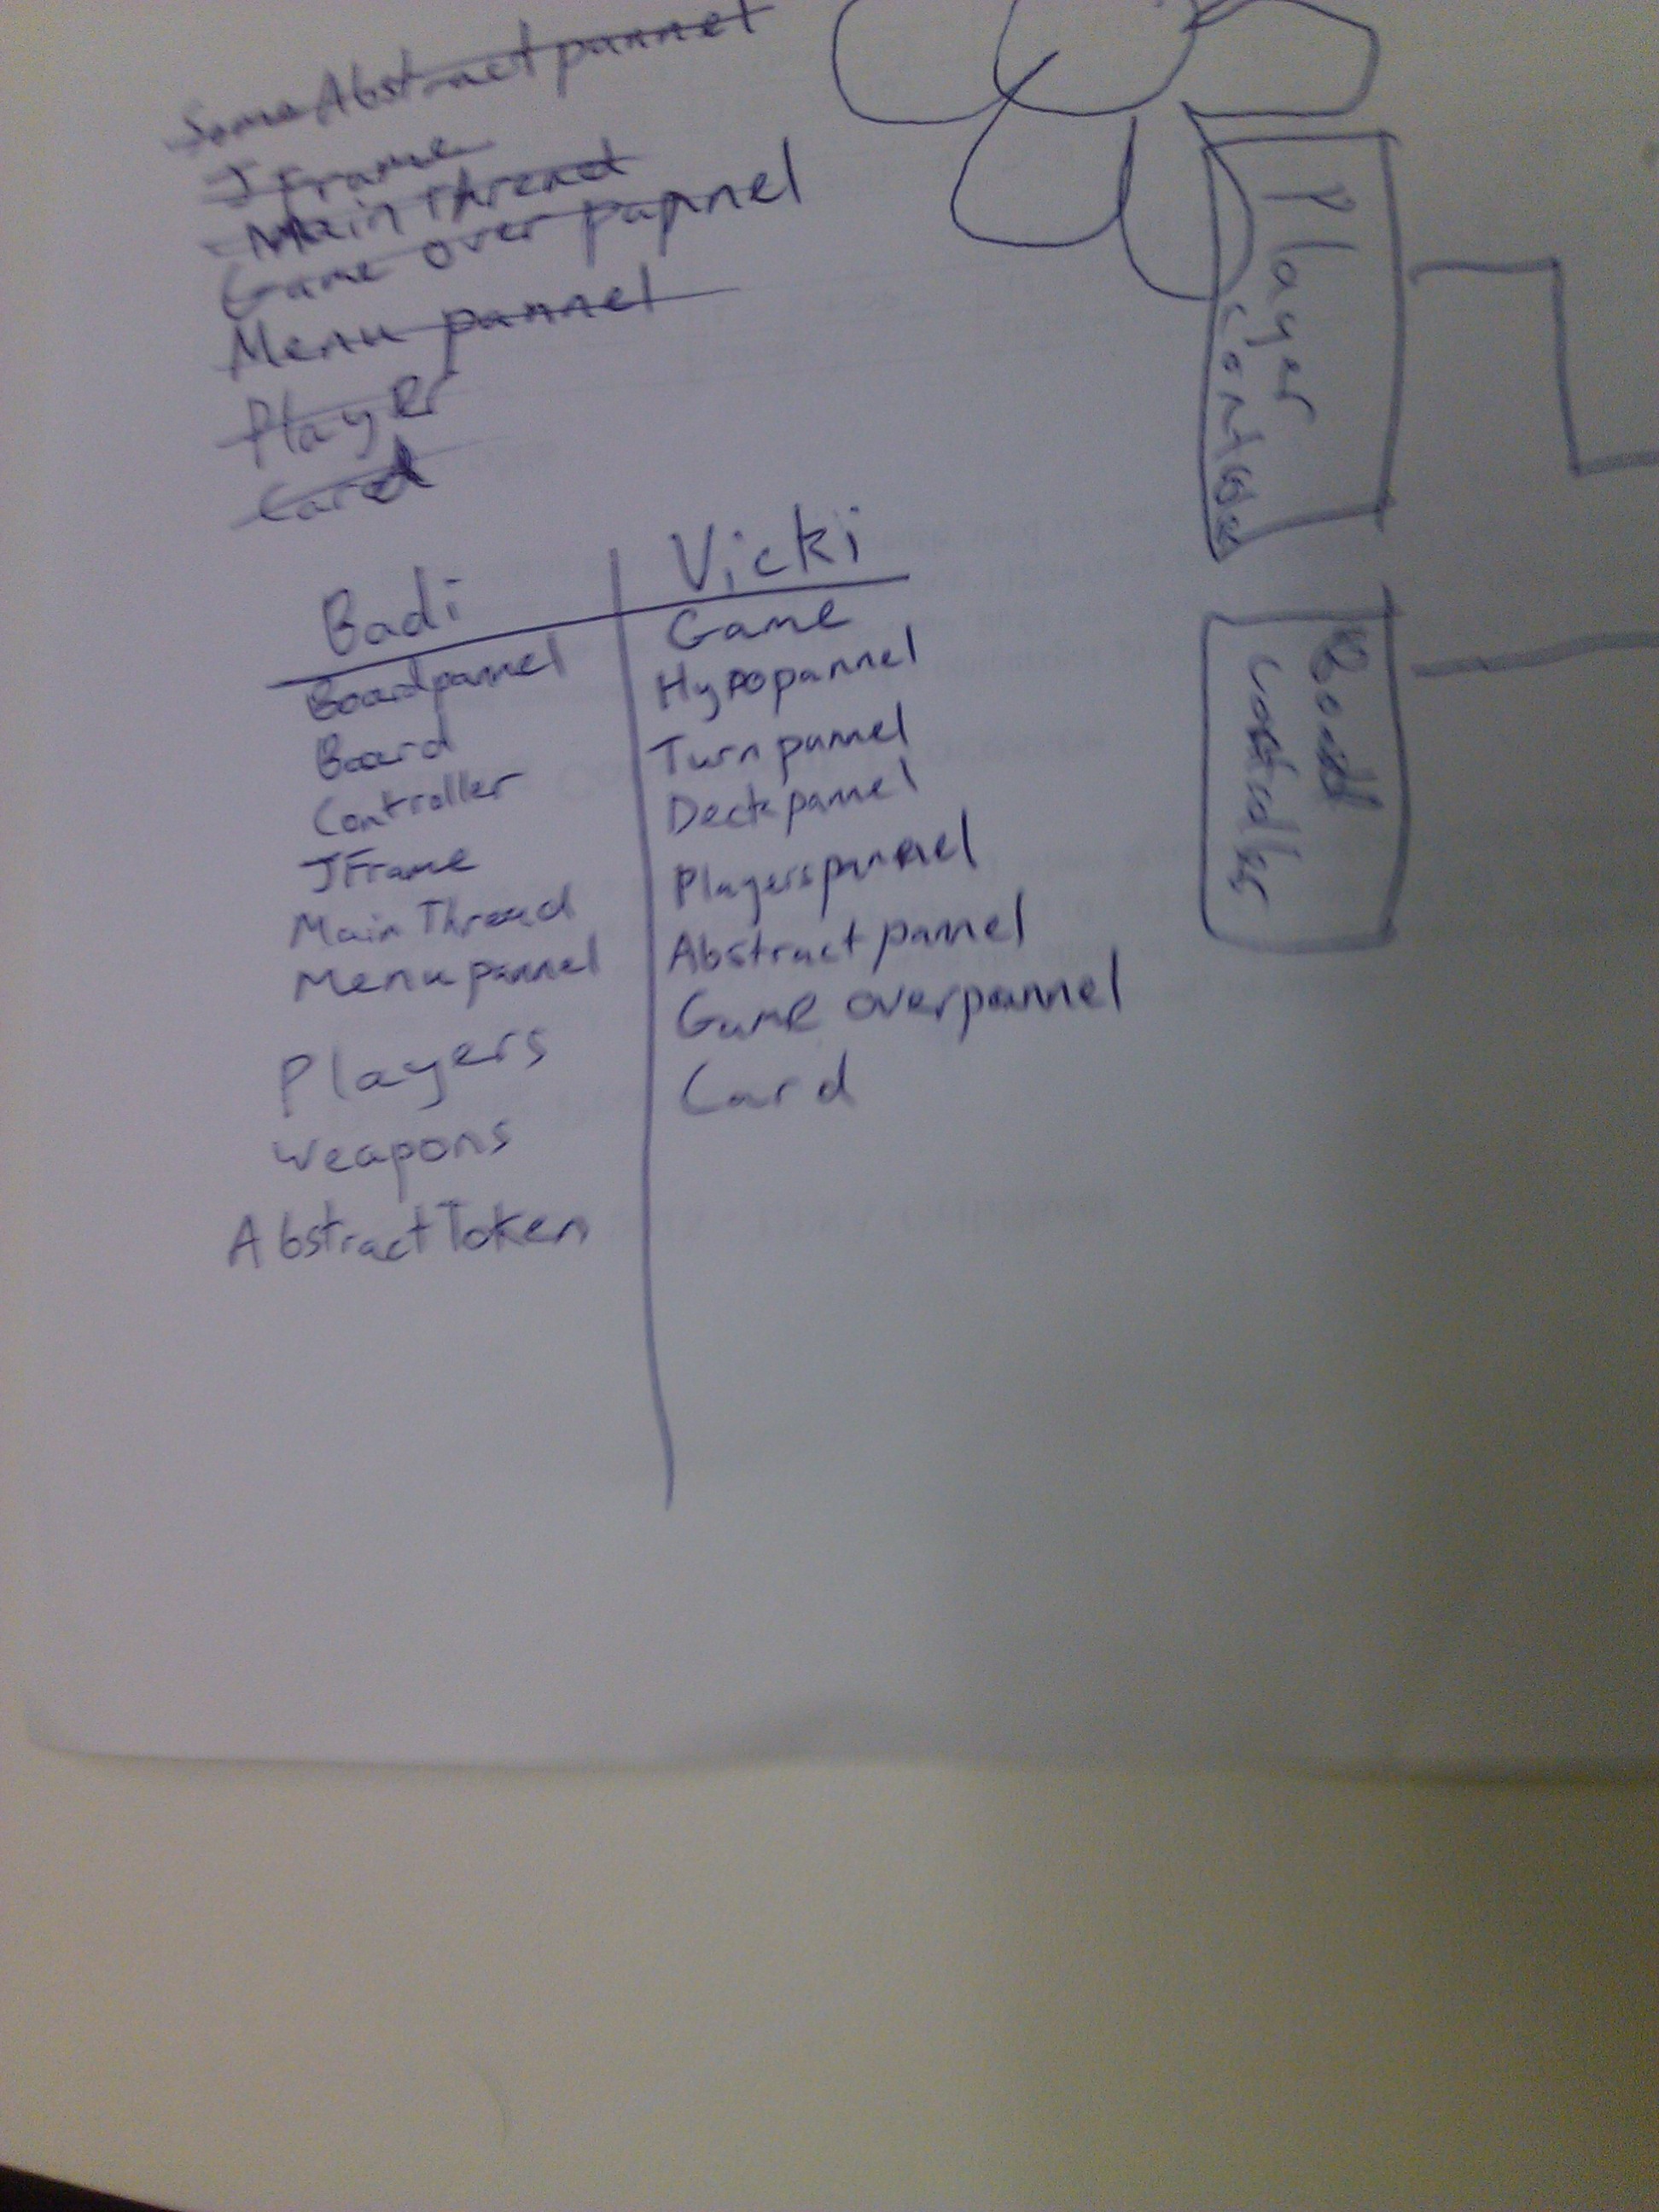 Some Abstract pannel
JFrame
Main Thread
Game over papnnel
Menu pannel
Player
Card
Badi Vicki
Boardpannel Game
Board Hypopannel
Controller Turn pannel
JFrame Deck pannel
Main Thread Playerspannel
Menu pannel Abstract pannel
Players Game overpannel
Weapons Card
AbstractToken
Player
Board